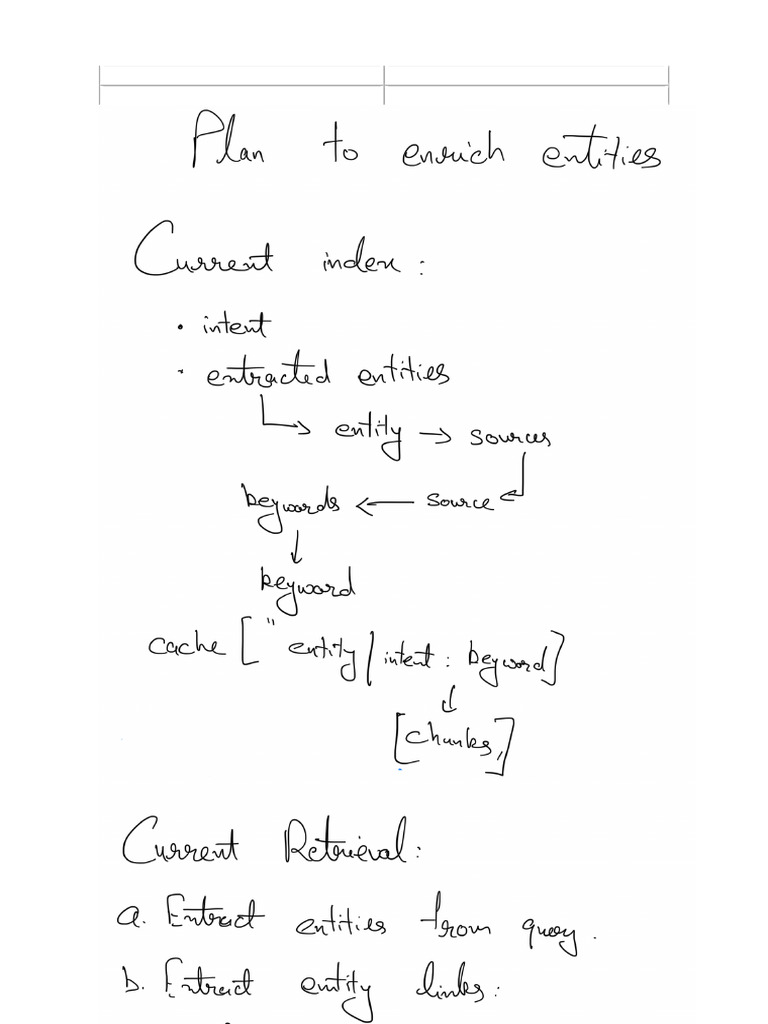 Plan to enrich entities
Current index :
• intent
• extracted entities
↳ entity → sources
keywords ← source
↓
keyword
cache [ " entity / intent : keyword ]
↓
[ chunks, ]
Current Retrieval :
a. Extract entities from query .
b. Extract entity links :